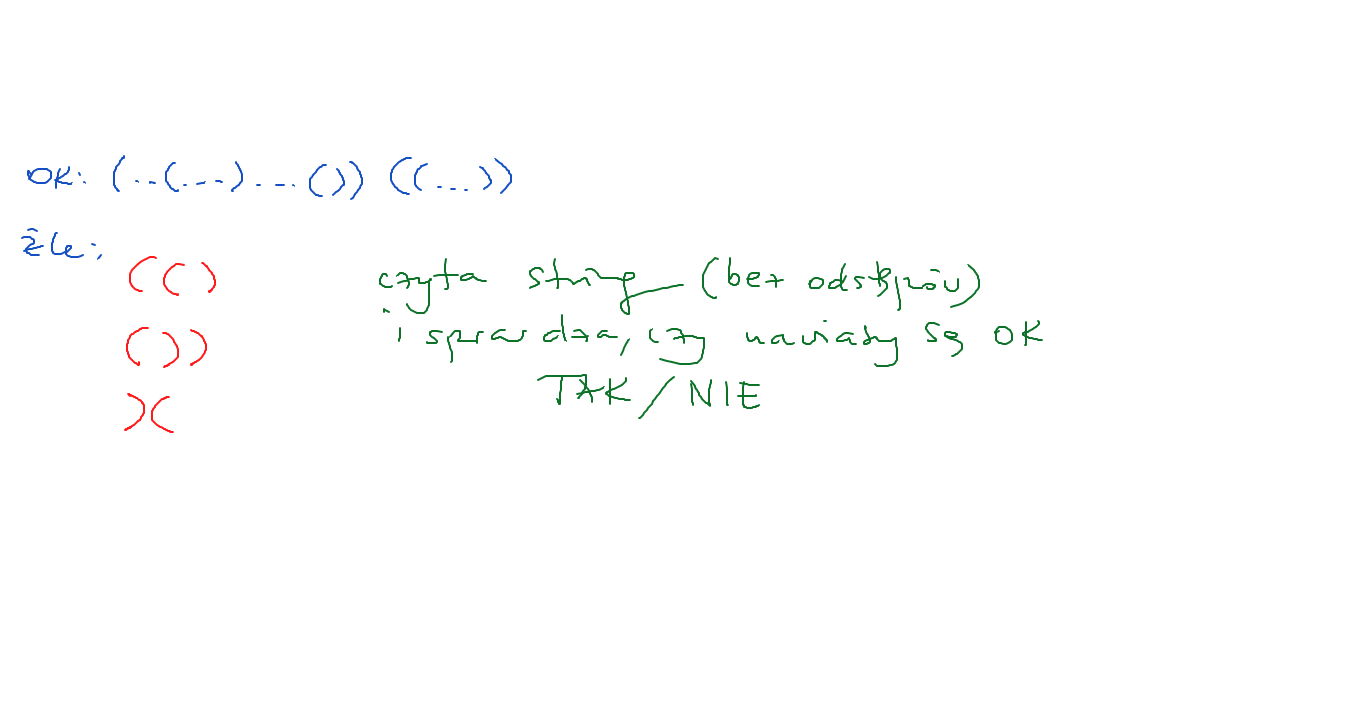 OK: (..(...)...()) ((...))
źle:
(()
czyta string (bez odstępów)
())
i sprawdza, czy nawiasy są OK
)(
TAK/NIE